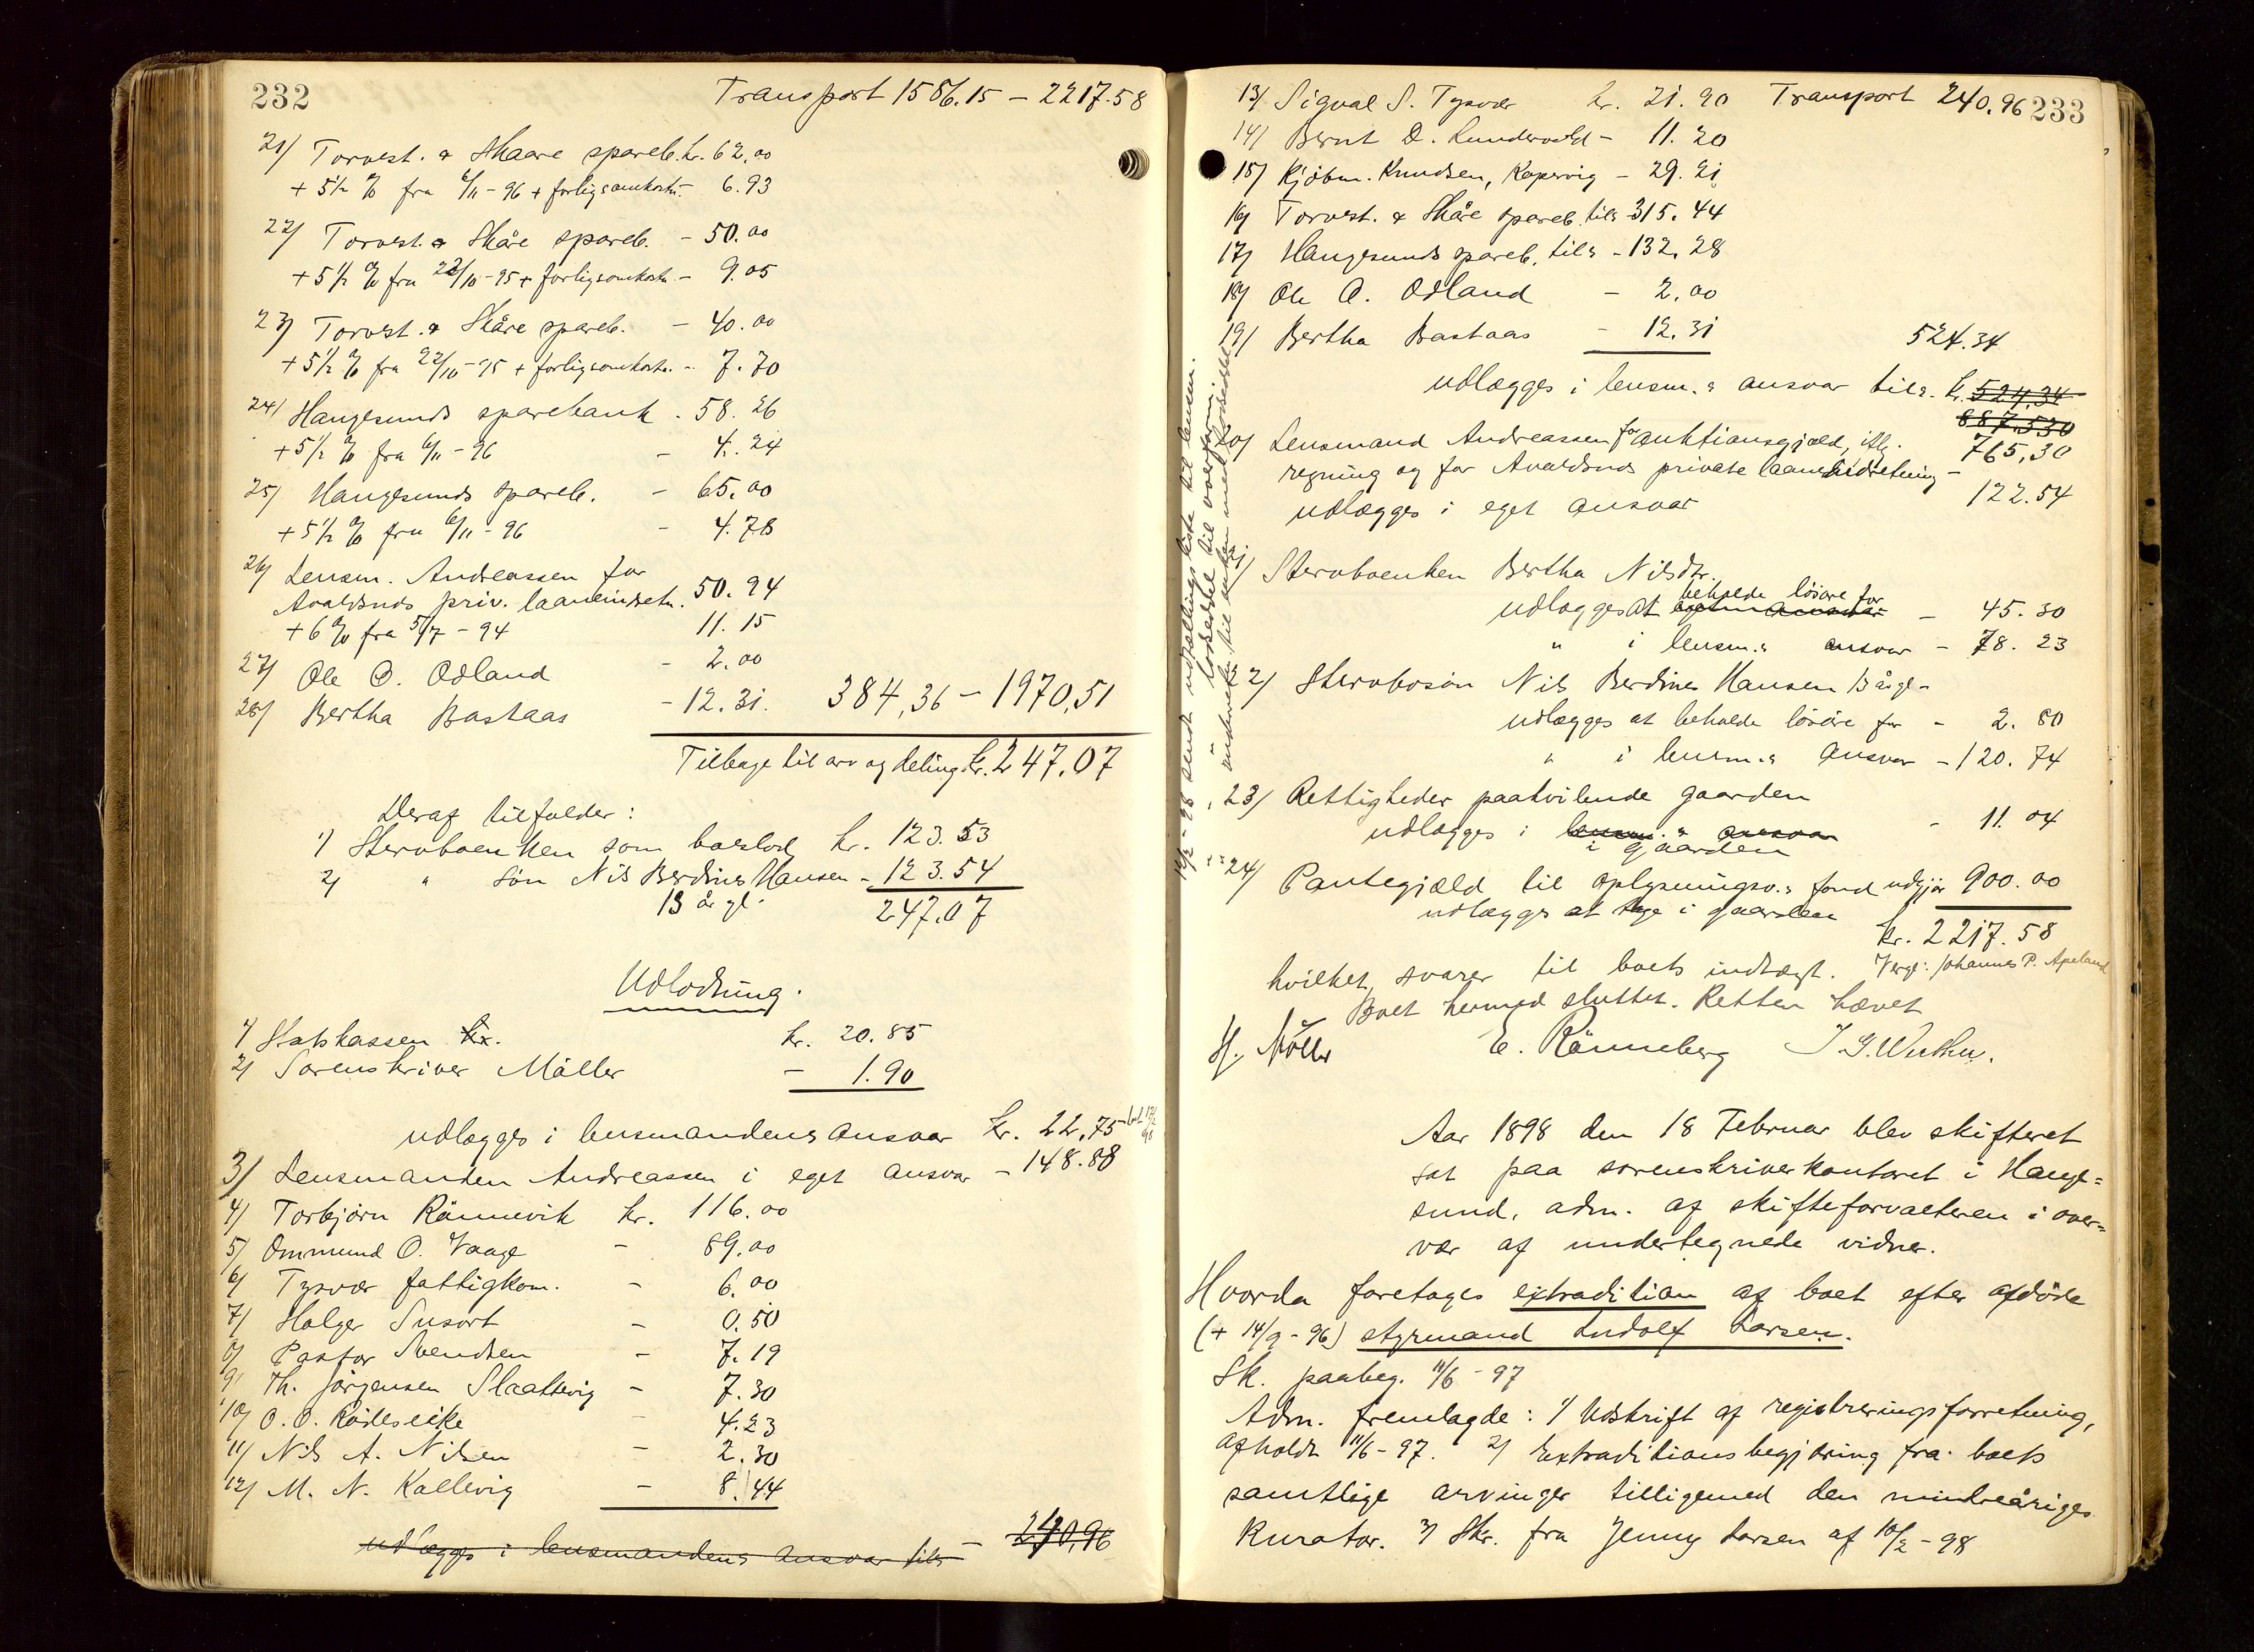 232
Transport 1586.15 - 2217.58
21/ Torvest. & Skaare spareb. kr. 62.00
+ 5 1/2 % fra 6/11 - 96 + forligsomkostn. - 6.93
22/ Torvest. & Skåre spareb. - 50.00
+ 5 1/2 % fra 22/10 - 95 + forligsomkostn. - 9.05
23/ Torvest. & Skåre spareb. - 40.00
+ 5 1/2 % fra 22/10 - 95 + forligsomkostn. - 7.70
24/ Haugesunds sparebank - 58.26
+ 5 1/2 % fra 6/11 - 96 - 4.24
25/ Haugesunds spareb. - 65.00
+ 5 1/2 % fra 6/11 - 96 - 4.78
26/ Lensm. Andreassen for
Avaldsnds priv. laaneindretn. 50.94
+ 6 % fra 5/7 - 94 11.15
27/ Ole O. Odland - 2.00
28/ Bertha Bastaas - 12.31. 384,36 - 1970,51
Tilbage til arv og deling kr. 247.07
Deraf tilfalder:
1/ Stervboenken som boeslod kr. 123.53
2/ " søn Nils Berdines Hansen - 123.54
13 år gl. 247.07
Udlodning.
1/ Statskassen kr. kr. 20.85
2/ Sorenskriver Møller - 1.90
udlægges i lensmandens ansvar kr. 22,75
3/ Lensmanden Andreassen i eget ansvar - 148.88
4/ Torbjørn Rønnevik kr. 116.00
5/ Ommund O. Vaage - 89.00
6/ Tysvær fattigkom. - 6.00
7/ Holger Susort - 0.50
8/ Pastor Svendsen - 7.19
9/ Th. Jørgensen Slaattevig - 7.30
10/ O. O. Rødeseike - 4.23
11/ Nils A. Nilsen - 2.30
12/ M. N. Kallevig - 8.44
udlægges i lensmandens ansvar tils - 240,96
233
13/ Sigval S. Tysvær kr. 21.90 Transport 240.96
14/ Bernt D. Lundervold - 11.20
15/ Kjøbm. Knudsen, Kopervig - 29.21
16/ Torvest. & Skåre spareb. tils 315.44
17/ Haugesunds spareb. tils - 132.28
18/ Ole O. Odland - 2.00
19/ Bertha Bastaas - 12.31 524.34
udlægges i lensm.s ansvar tils. kr. 524,34
887.530
765,30
20/ Lensmand Andreassen for auktionsgjæld, iflg.
regning og for Avaldsnds private laaneindretning -
udlægges i eget ansvar 122.54
21/ Stervboenken Bertha Nilsdtr.
udlægges at beholde løsøre for - 45.30
" i lensm.s ansvar - 78.23
22/ Stervbosøn Nils Berdines Hansen 13 år gl -
udlægges at beholde løsøre for - 2.80
" i lensm.s ansvar - 120.74
23/ Rettigheder paahvilende gaarden
udlægges i lensm.s ansvar - 11.04
i gaarden
24/ Pantegjæld til oplysningsv.s fond udgjør 900.00
udlægges at tage i gaarden
kr. 2217.58
hvilket svarer til boets indtægt. Verge: Johannes P. Apeland
Boet hermed sluttet. Retten hævet
H. Møller E. Rønneberg
Aar 1898 den 18 Februar blev skifteret
sat paa sorenskriverkontoret i Hauge=
sund, adm. af skifteforvalteren i over=
vær af undertegnede vidner.
Hvorda foretoges extradition af boet efter afdøde
(+ 14/9 - 96) styrmand Ludolf Larsen.
Sk. paabeg. 11/6 - 97
Adm. fremlagde: 1/ Udskrift af registreringsforretning,
afholdt 11/6 - 97. 2/ Extraditionsbegjæring fra boets
samtlige arvinger tilligemed den mindreåriges
Kurator. 3/ Skr. fra Jenny Larsen af 10/2 - 98